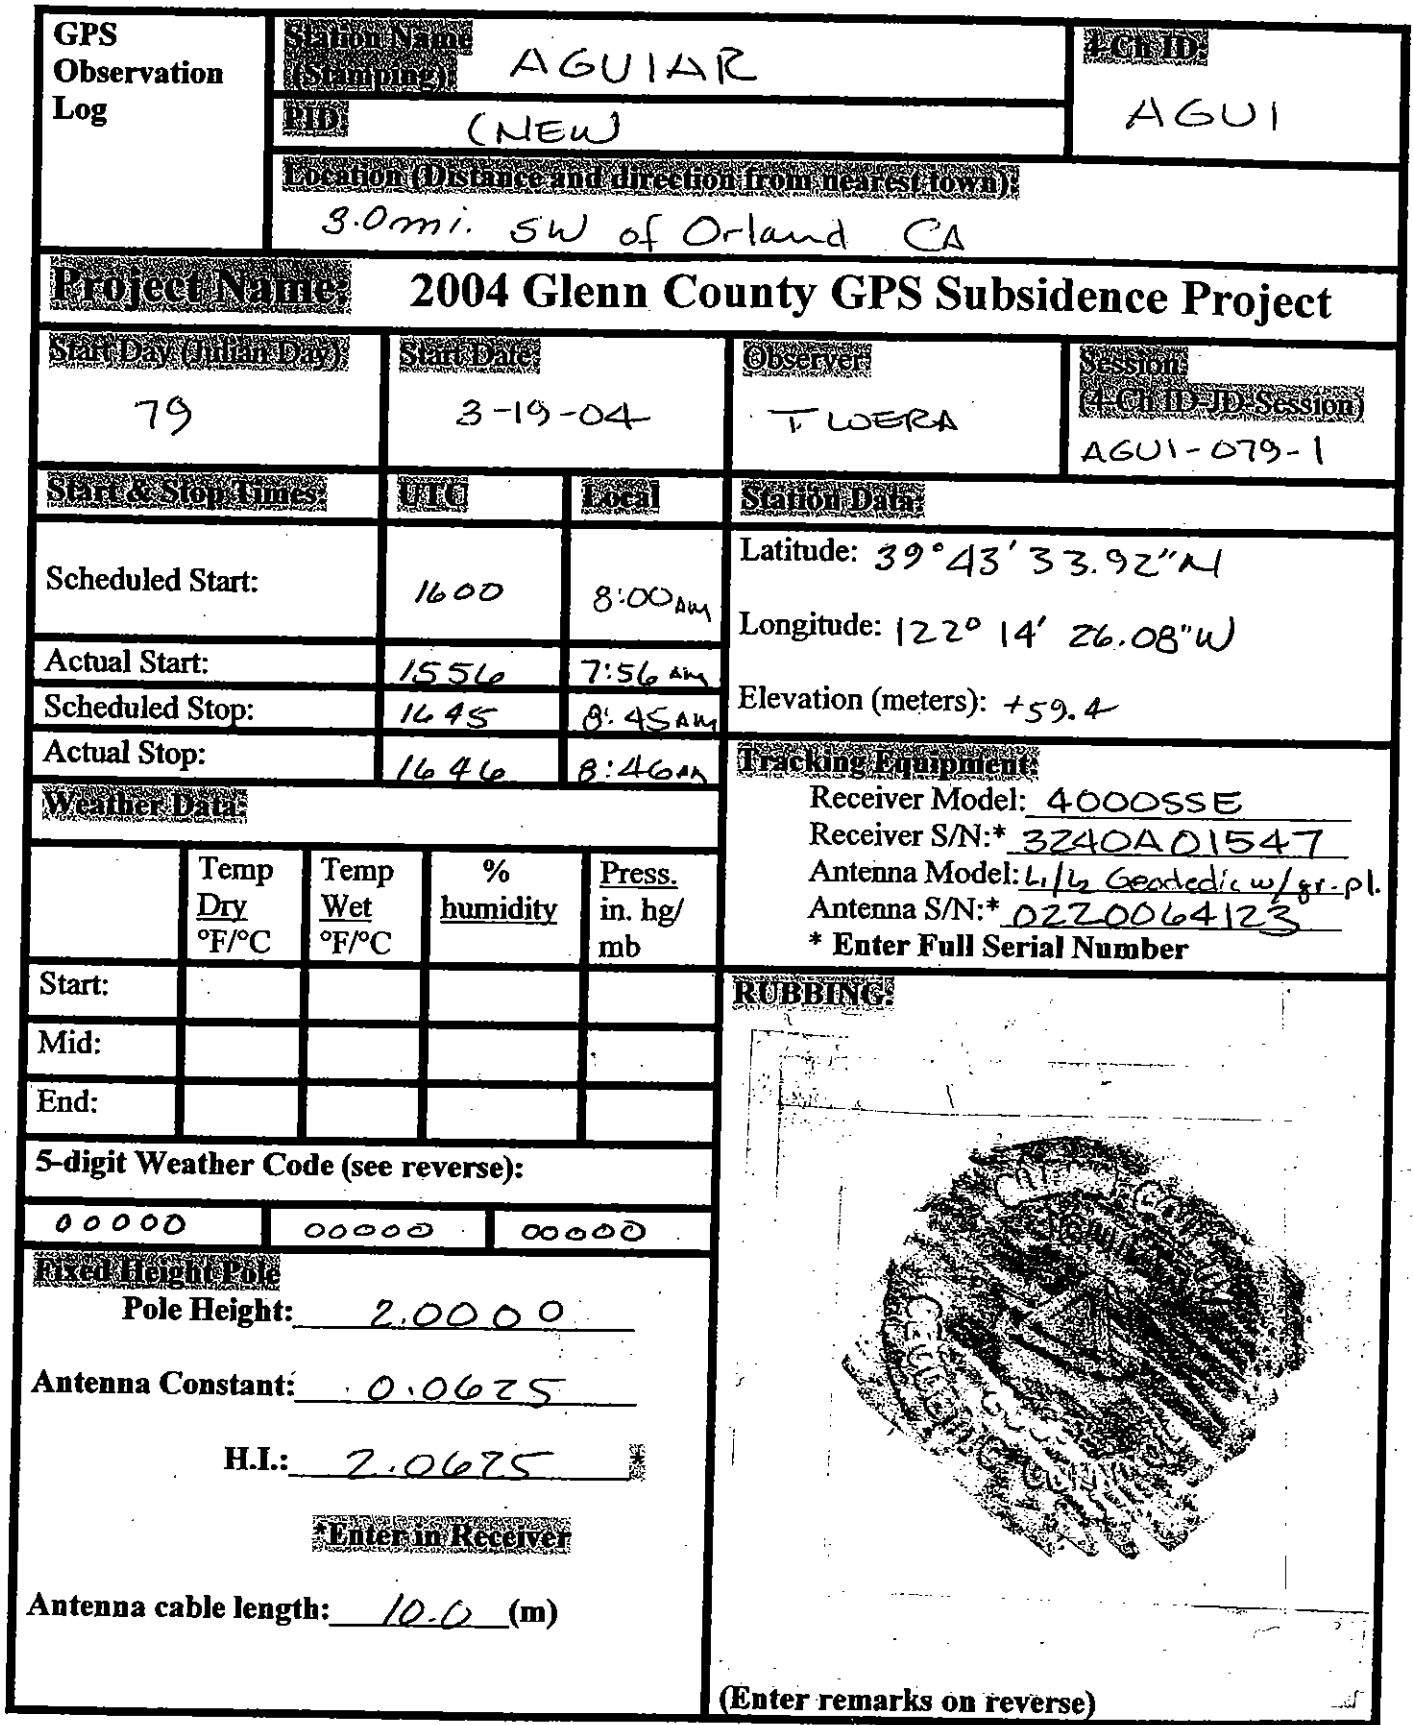 GPS
Observation
Log
Station Name
(Stamping):
AGUIAR
4-Ch ID:
AGUI
PID:
(NEW)
Location (Distance and direction from nearest town):
3.0mi. SW of Orland CA
Project Name: 2004 Glenn County GPS Subsidence Project
Start Day (Julian Day)
79
Start Date:
3-19-04
Observer:
T WERA
Session:
(4-Ch ID-JD-Session)
AGUI-079-1
Start & Stop Times: UTC Local
Scheduled Start: 1600 8:00 AM
Actual Start: 1556 7:56 AM
Scheduled Stop: 1645 8:45 AM
Actual Stop: 1646 8:46 AM
Station Data:
Latitude: 39°43'33.92"N
Longitude: 122° 14' 26.08"W
Elevation (meters): +59.4
Tracking Equipment:
Receiver Model: 4000SSE
Receiver S/N:* 3240A01547
Antenna Model: L1/L2 Geodedic w/gr.pl.
Antenna S/N:* 0220064123
* Enter Full Serial Number
Weather Data:
Temp
Dry
°F/°C
Temp
Wet
°F/°C
%
humidity
Press.
in. hg/
mb
Start:
Mid:
End:
5-digit Weather Code (see reverse):
00000 00000 00000
Fixed Height Pole
Pole Height: 2.0000
Antenna Constant: 0.0625
H.I.: 2.0625 *
*Enter in Receiver
Antenna cable length: 10.0 (m)
RUBBING:
(Enter remarks on reverse)